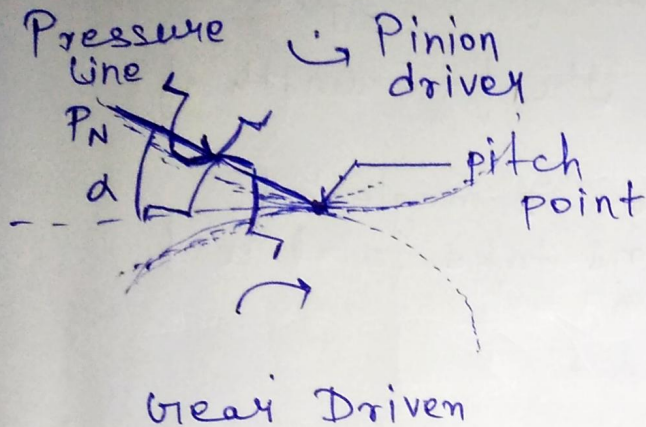 Pressure
line
Pinion
driver
PN
α
pitch
point
Gear Driven